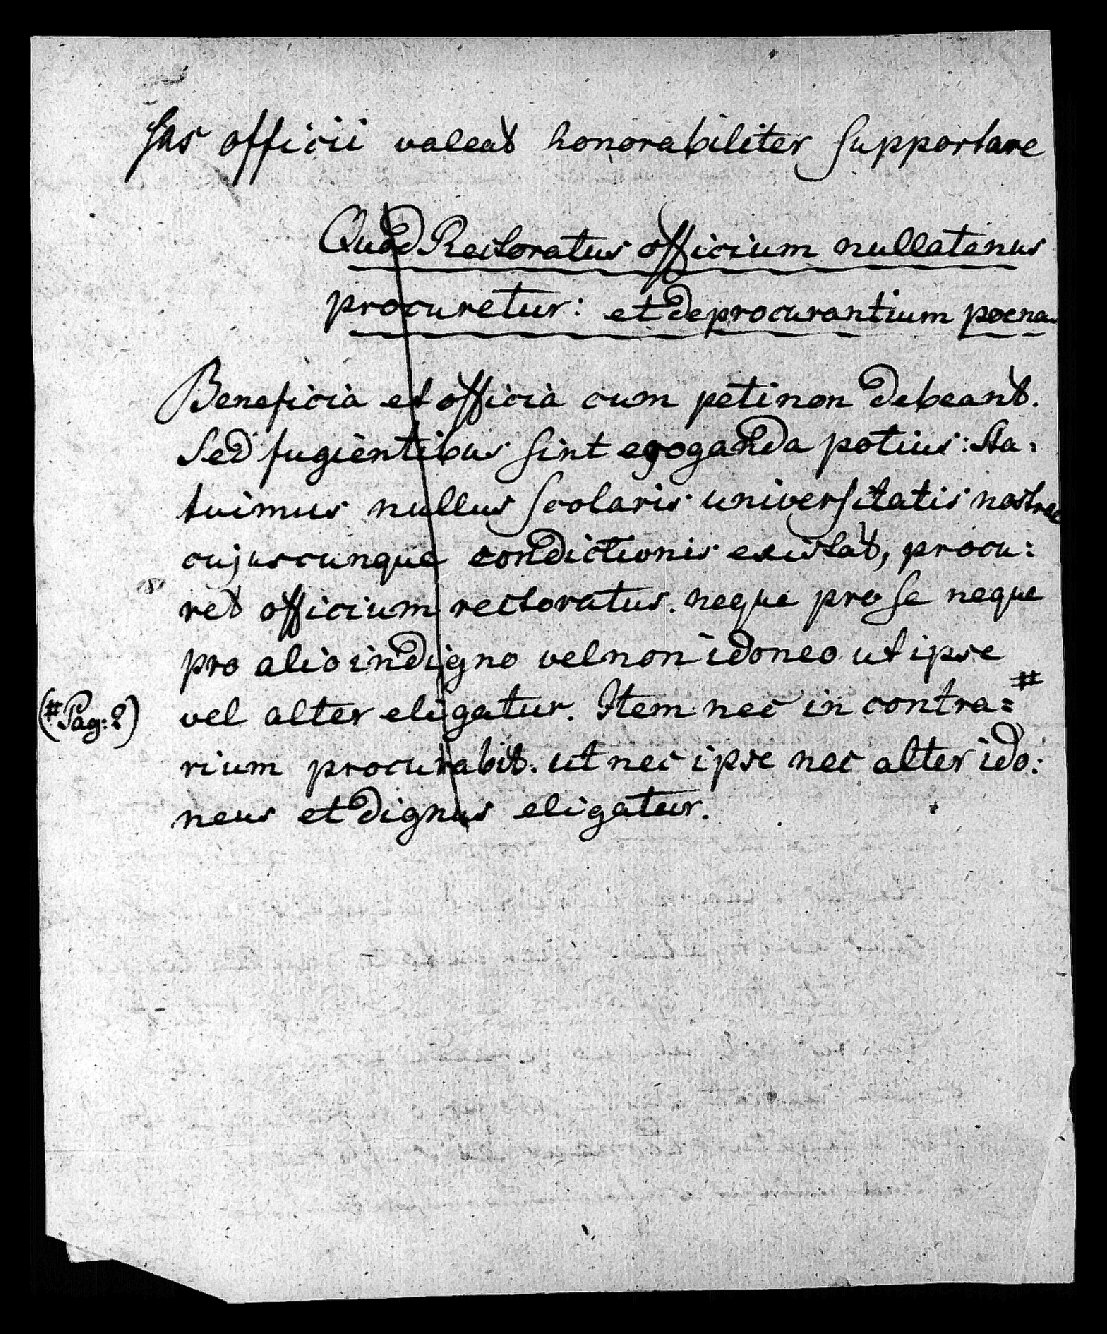 sas officii valeat honorabiliter supportare
Quod Rectoratus officium nullatenus
procuretur: et de procurantium poena
Beneficia et officia cum peti non debeant.
Sed fugientibus sint eroganda potius: Sta:
tuimus nullus scolaris universitatis nostrae
cujuscunque condictionis existat, procu:
ret officium rectoratus. neque pro se neque
pro alio indigno vel non idoneo ut ipse
vel alter eligatur. Item nec in contra= #
(# Pag: 2)
rium procurabit. ut nec ipse nec alter ido:
neus et dignus eligatur.